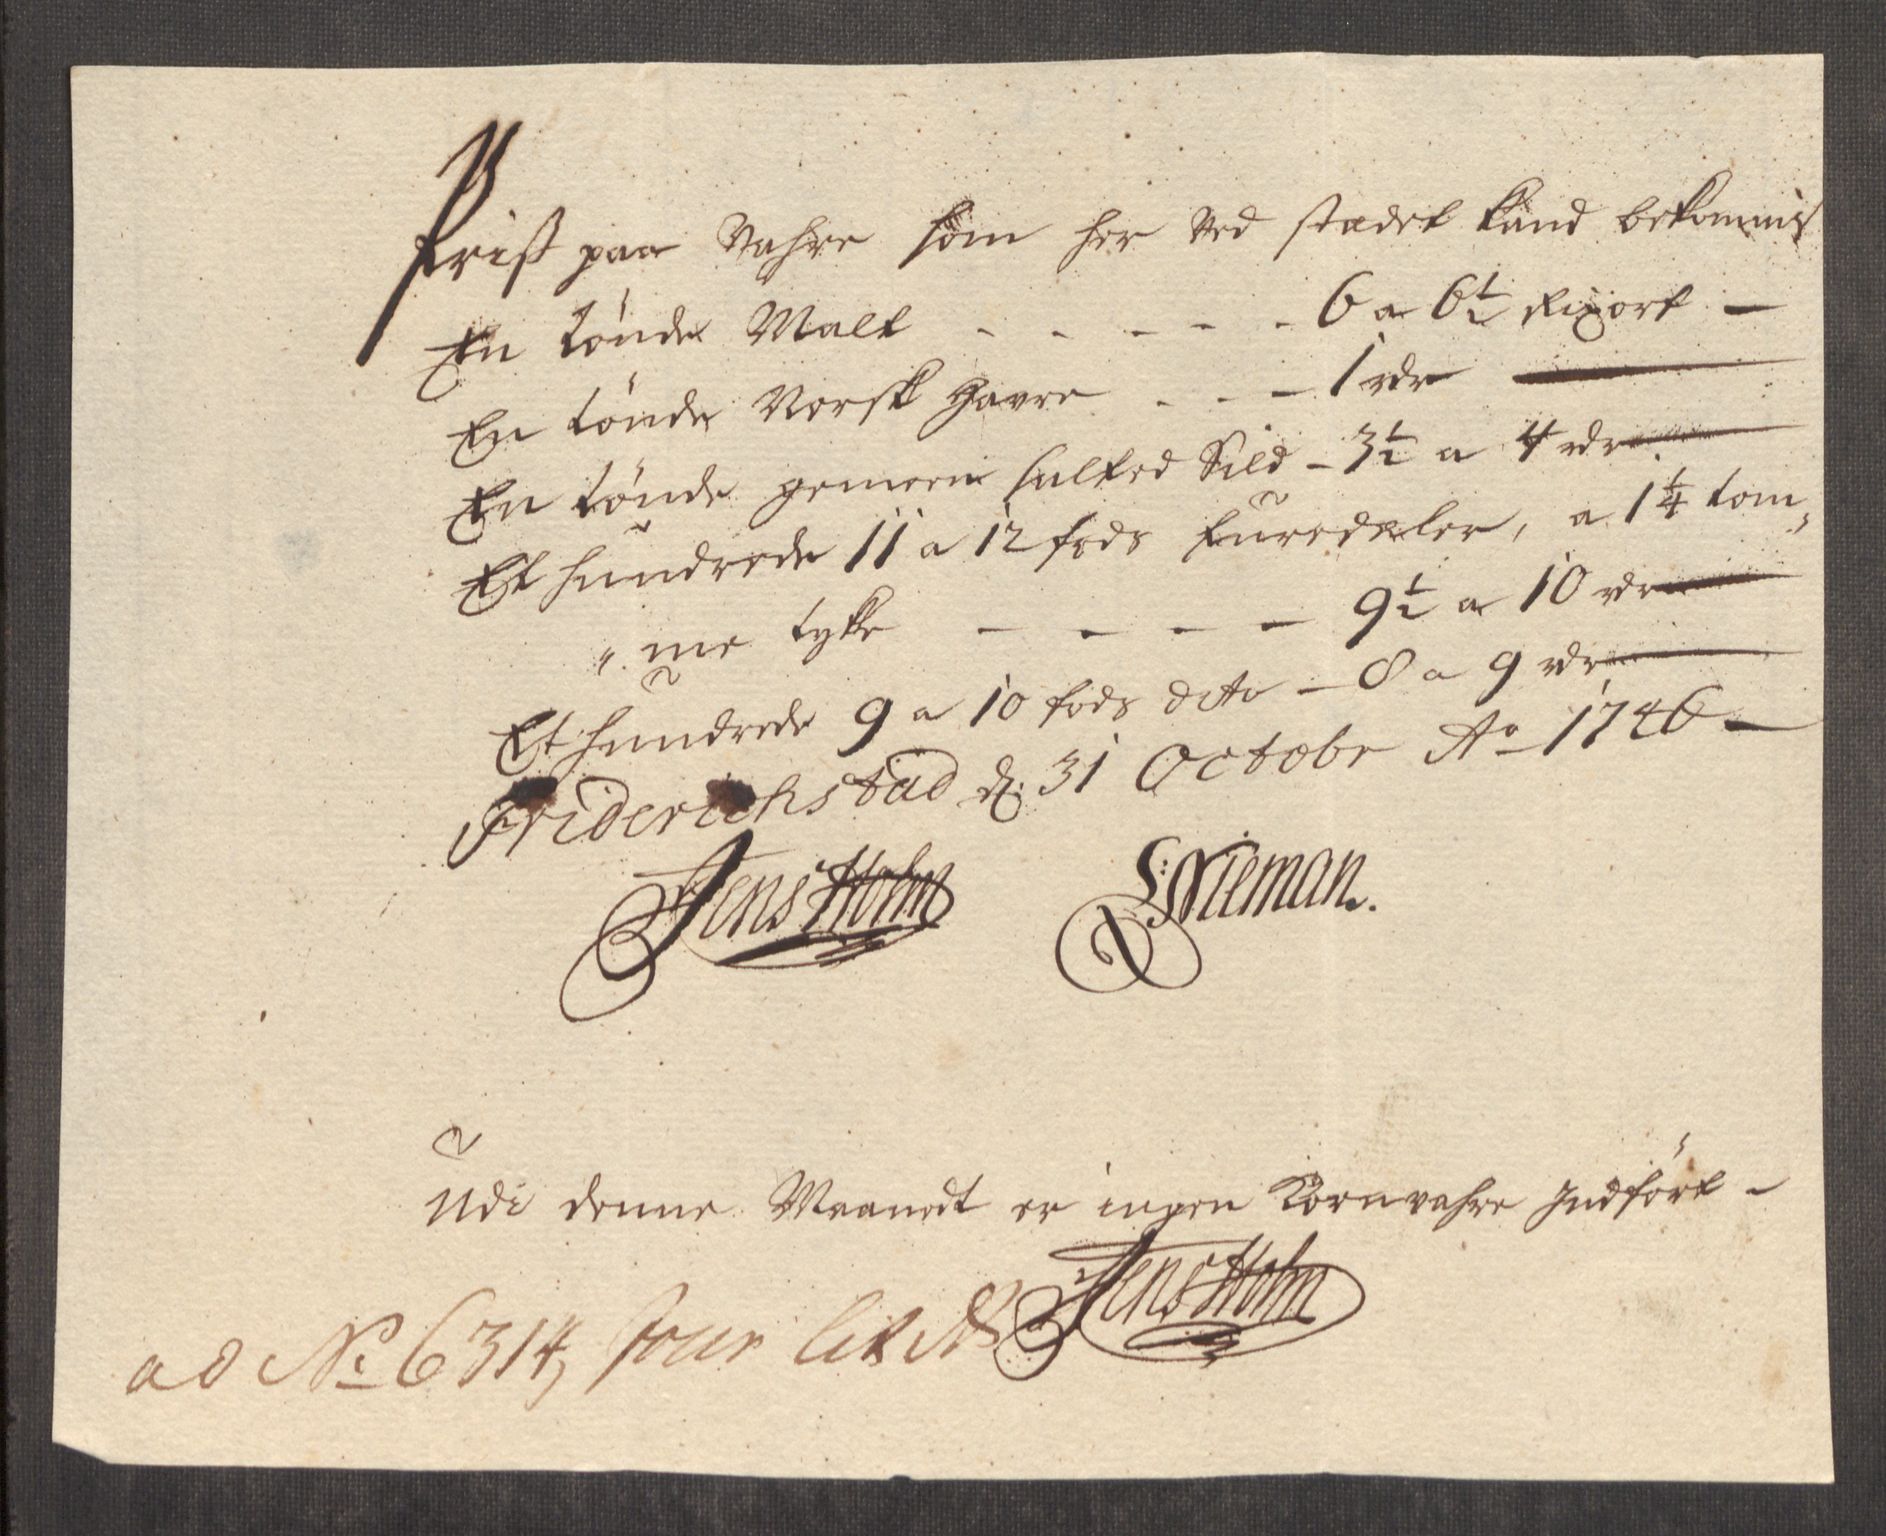 Priss paa Vahre som her ved stædet kand bekommis
En tønde Malt - - - - - 6 a 6½ Rixort -
En tønde Norsk Havre - - - 1 rdr
En tønde gemeen salted Sild - 3½ a 4 rdr
Et hundrede 11 a 12 fods furedæler, a 1¼ tom„
„me tykke - - - - 9½ a 10 rdr
Et hundrede 9 a 10 fods dito - 8 a 9 rdr
Friderichstad d. 31 Octobr Ao 1746 -
Jens Holm Nieman.
Udi denne Maanedt er ingen Kornvahre Indført -
Jens Holm
ad No 6314, Jour lit